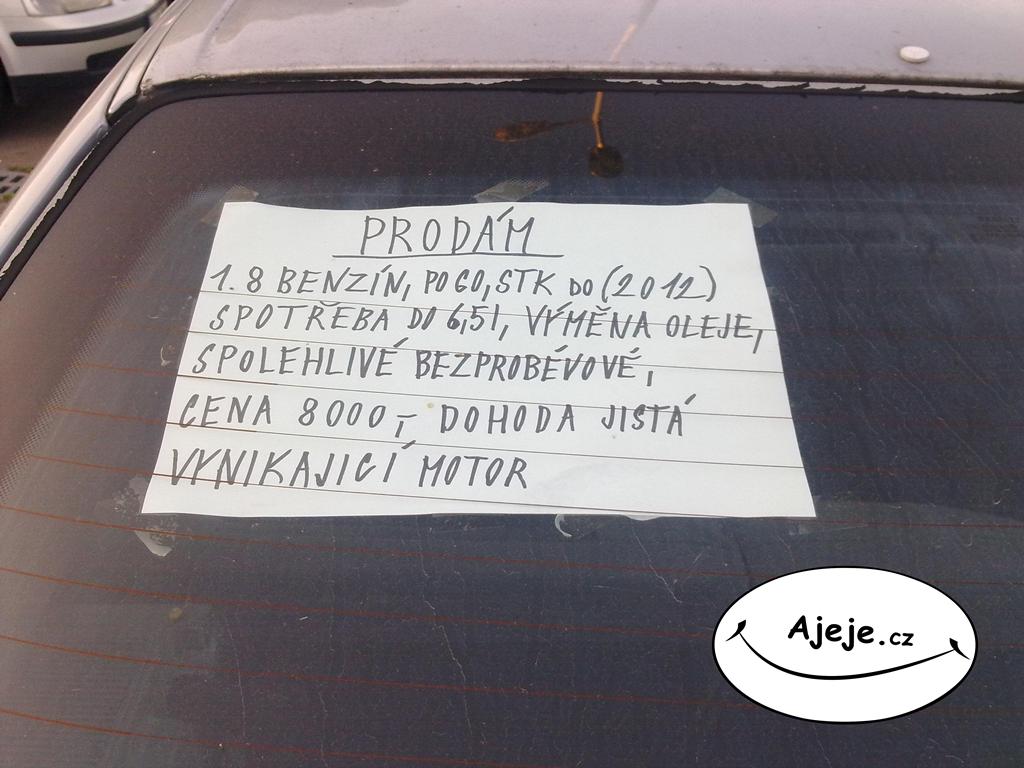 PRODÁM
1.8 BENZÍN, PO GO, STK DO (2012)
SPOTŘEBA DO 6,5l, VÝMĚNA OLEJE,
SPOLEHLIVÉ BEZPROBÉVOVÉ,
CENA 8000,- DOHODA JISTÁ
VYNIKAJICÍ MOTOR
Ajeje.cz